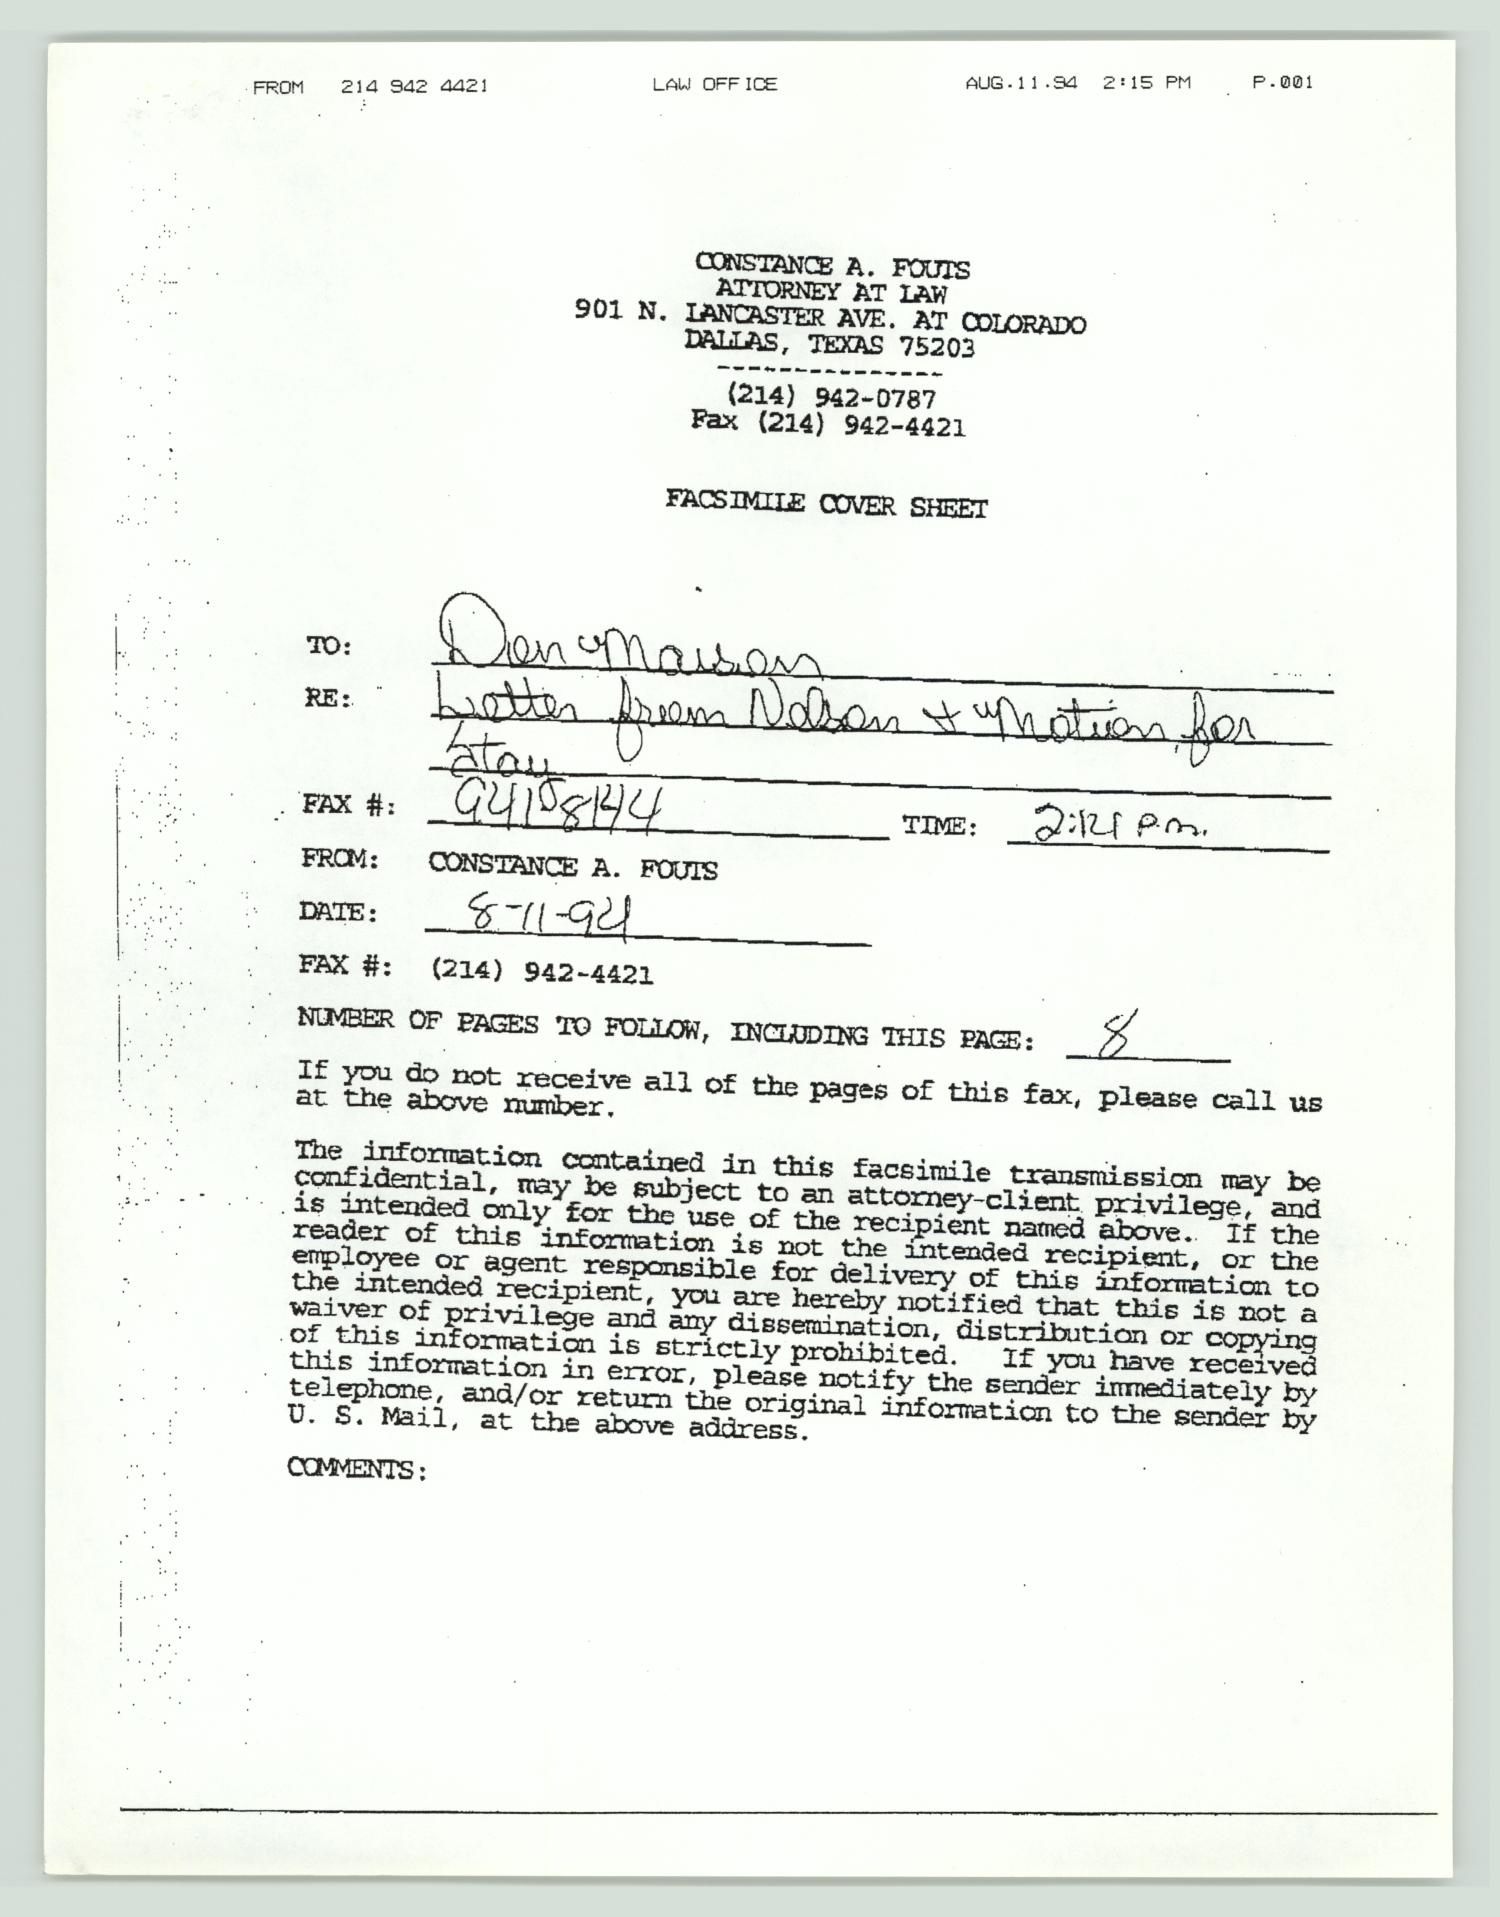 FROM 214 942 4421 LAW OFFICE AUG.11.94 2:15 PM P.001
CONSTANCE A. FOUTS
ATTORNEY AT LAW
901 N. LANCASTER AVE. AT COLORADO
DALLAS, TEXAS 75203
---------------
(214) 942-0787
Fax (214) 942-4421
FACSIMILE COVER SHEET
TO: Don Maison
RE: Letter from Nelson + Motion for
Stay
FAX #: 941-8144 TIME: P.m.
FROM: CONSTANCE A. FOUTS
DATE: 8-11-94
FAX #: (214) 942-4421
NUMBER OF PAGES TO FOLLOW, INCLUDING THIS PAGE: 8
If you do not receive all of the pages of this fax, please call us
at the above number.
The information contained in this facsimile transmission may be
confidential, may be subject to an attorney-client privilege, and
is intended only for the use of the recipient named above. If the
reader of this information is not the intended recipient, or the
employee or agent responsible for delivery of this information to
the intended recipient, you are hereby notified that this is not a
waiver of privilege and any dissemination, distribution or copying
of this information is strictly prohibited. If you have received
this information in error, please notify the sender immediately by
telephone, and/or return the original information to the sender by
U. S. Mail, at the above address.
COMMENTS: